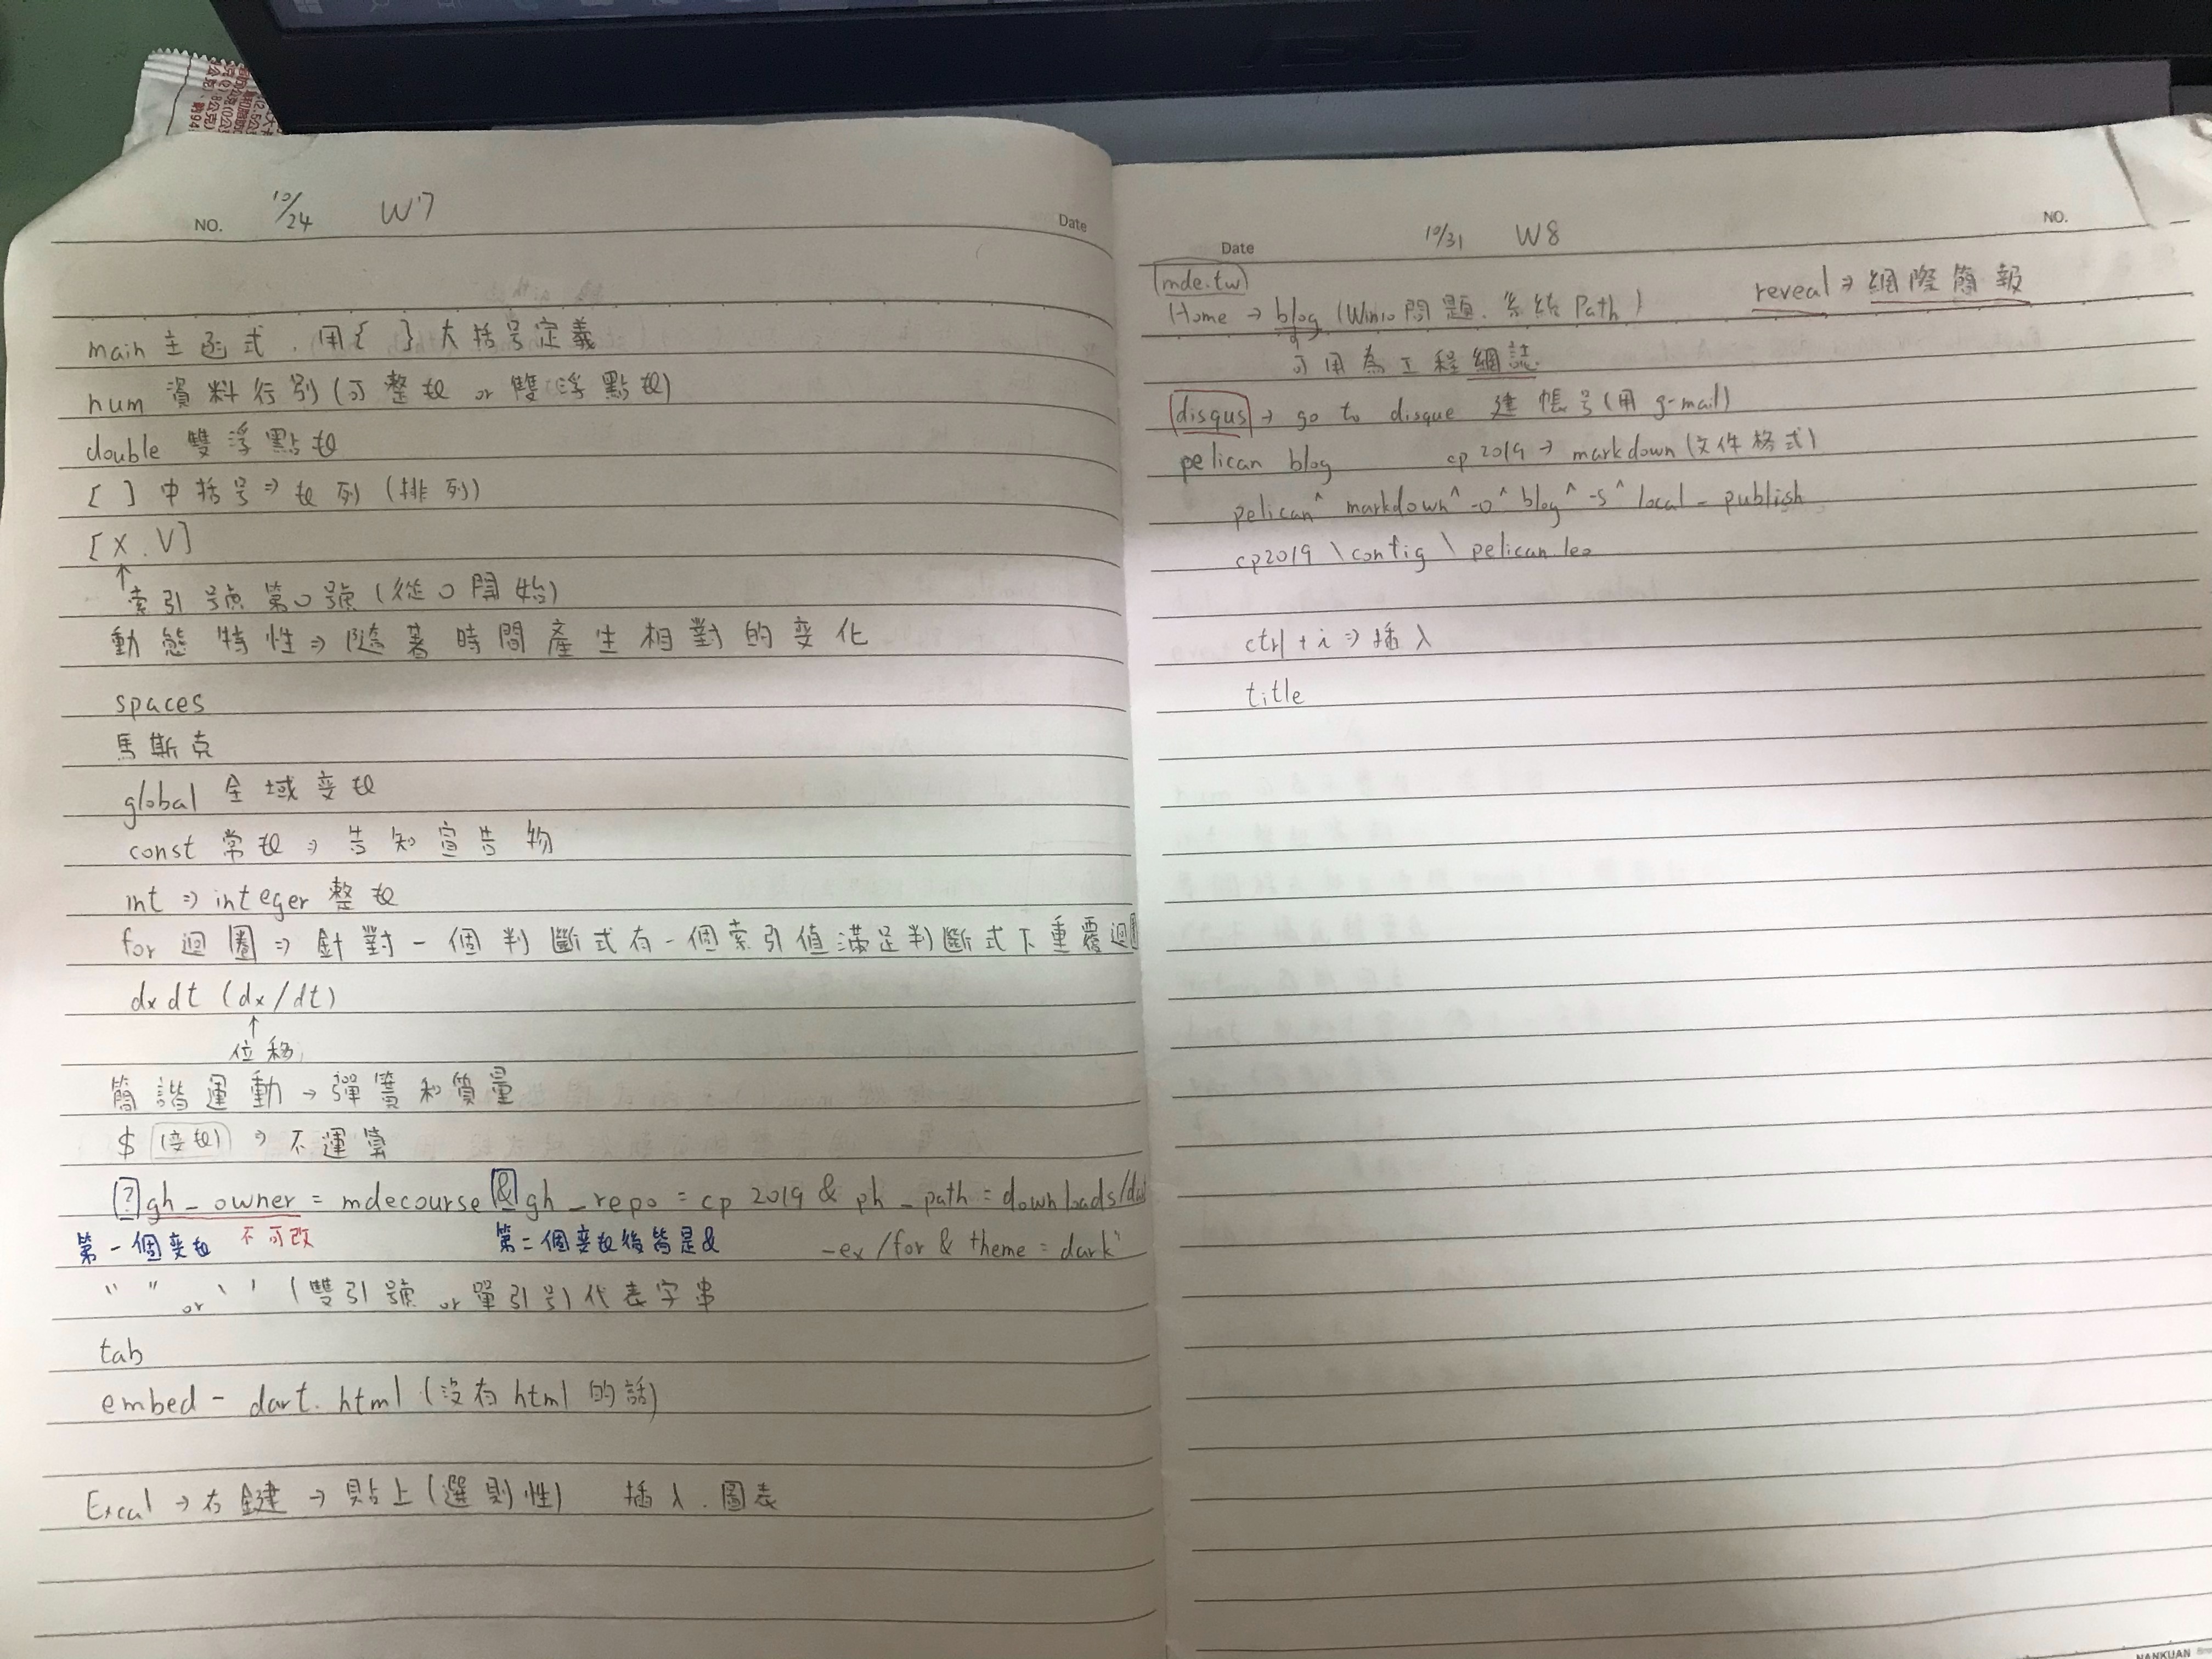 NO. 10/24 W7 Date
main 主函式.用{ }大括号定義
num 資料行別(可整数 or 雙浮點数)
double 雙浮點数
[ ] 中括号⇒数列(排列)
[X.V]
↑索引號第0號(從0開始)
動態特性⇒隨著時間產生相對的变化
spaces
馬斯克
global 全域变数
const 常数⇒告知宣告物
int ⇒ integer 整数
for 迴圈⇒針對一個判斷式有一個索引值滿足判斷式下重覆迴
dxdt (dx/dt)
↑位移
簡諧運動→彈簧和質量
$(变数)⇒不運算
?gh-owner=mdecourse&gh-repo=cp2019&ph-path=downloads/
第一個变数 不可改 第二個变数後皆是& -ex/for & theme=dark"
" " or ' ' (雙引號 or 單引号)代表字串
tab
embed-dart.html(沒有html的話)
Excal→右鍵→貼上(選則性) 插入.圖表
Date 10/31 W8 NO.
mde.tw reveal⇒網際簡報
Home→blog(Win10問題.系統Path)
可用為工程網誌.
disqus→go to disque 建帳号(用g-mail)
pelican blog cp2019→markdown(文件格式)
pelican^markdown^-o^blog^-s^local-publish
cp2019\config\pelican.leo
ctrl+i⇒插入
title
NANKUAN